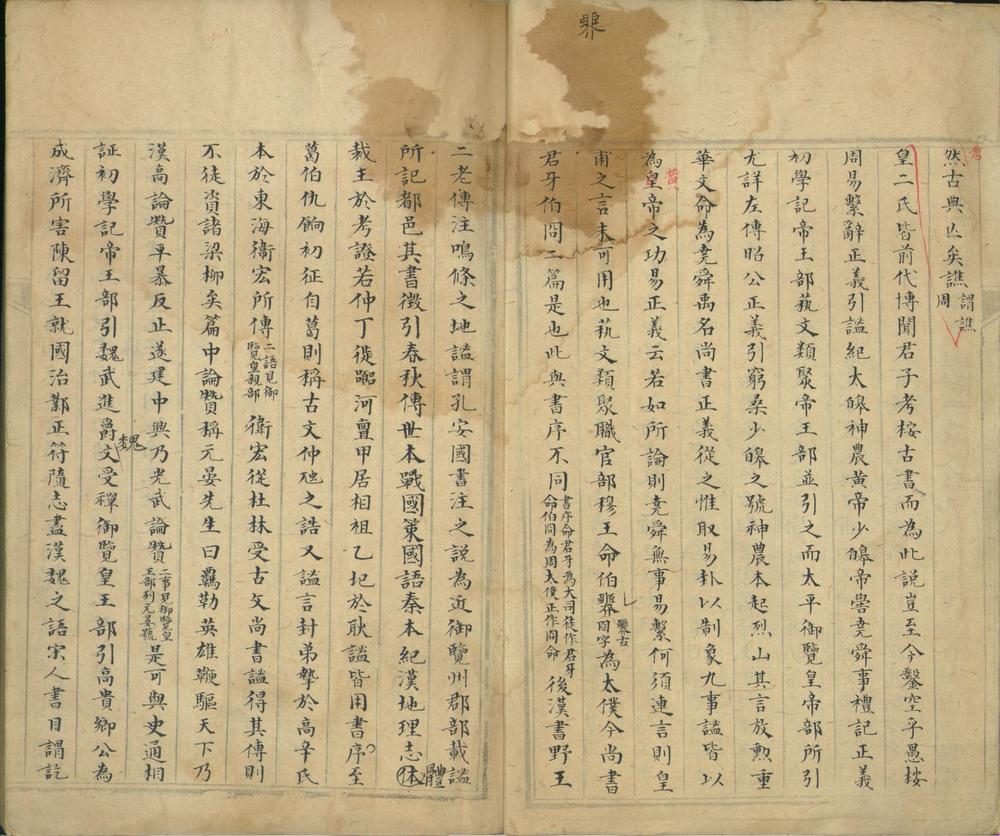 然古典亡矣譙謂譙周
皇二氏皆前代博聞君子考桉古書而為此說豈至今鑿空乎愚桉
周易繫辭正義引謐紀太皞神農黃帝少皞帝嚳堯舜事禮記正義
初學記帝王部蓺文類聚帝王部並引之而太平御覽皇帝部所引
尤詳左傳昭公正義引窮桑少皞之號神農本起烈山其言放勲重
華文命為堯舜禹名尚書正義從之惟取易卦以制象九事謐皆以
為皇帝之功易正義云若如所論則堯舜無事易繫何須連言則皇
甫之言未可用也蓺文類聚職官部穆王命伯臩臩古冏字為太僕今尚書
君牙伯冏二篇是也此與書序不同書序命君牙為大司徒作君牙命伯冏為周太僕正作冏命後漢書野王
二老傳注鳴條之地謐謂孔安國書注之說為近御覽州郡部載謐
所記都邑其書徵引春秋傳世本戰國策國語秦本紀漢地理志体體
裁主於考證若仲丁徙嚻河亶甲居相祖乙圮於耿謐皆用書序至
葛伯仇餉初征自葛則稱古文仲虺之誥又謐言封弟摯於高辛氏
本於東海衞宏所傳二語見御覽皇親部衞宏從杜林受古文尚書謐得其傳則
不徒資諸梁柳矣篇中論贊稱元晏先生曰羈勒英雄鞭驅天下乃
漢高論贊平暴反正遂建中興乃光武論贊二事見御覽皇王部列元晏號是可與史通相
証初學記帝王部引魏武進爵魏文受禪御覽皇王部引高貴鄉公為
成濟所害陳留王就國治鄴正符隨志盡漢魏之語宋人書目謂訖